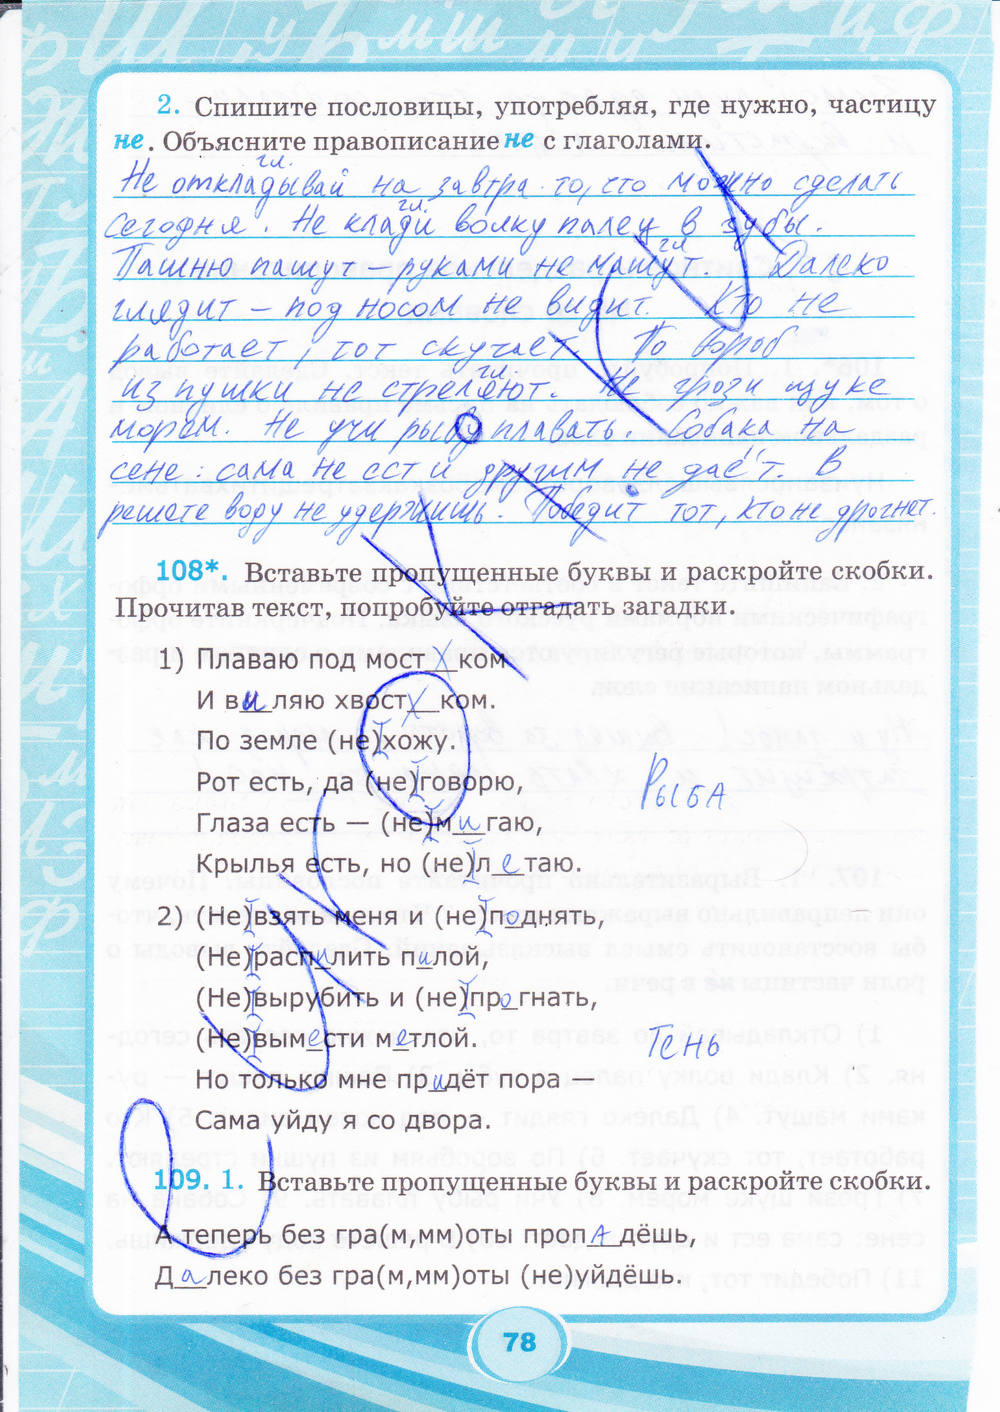 2. Спишите пословицы, употребляя, где нужно, частицу
не. Объясните правописание не с глаголами.
гл.
Не откладывай на завтра то, что можно сделать
гл.
сегодня. Не клади волку палец в зубы.
гл
Пашню пашут – руками не машут. Далеко
глядит – под носом не видит. Кто не
работает, тот скучает. По вороб
гл.
из пушки не стреляют. Не грози щуке
морем. Не учи рыбу плавать. Собака на
сене: сама не ест и другим не даёт. В
решете воду не удержишь. Победит тот, кто не дрогнет.
108*. Вставьте пропущенные буквы и раскройте скобки.
Прочитав текст, попробуйте отгадать загадки.
1) Плаваю под мост__ком
И виляю хвост__ком.
По земле (не)хожу.
Рот есть, да (не)говорю,
Глаза есть — (не)мигаю,
Рыба
Крылья есть, но (не)летаю.
2) (Не)взять меня и (не)поднять,
(Не)распилить пилой,
(Не)вырубить и (не)прогнать,
(Не)вымести метлой.
Тень
Но только мне придёт пора —
Сама уйду я со двора.
109. 1. Вставьте пропущенные буквы и раскройте скобки.
А теперь без гра(м,мм)оты пропАдёшь,
Далеко без гра(м,мм)оты (не)уйдёшь.
78